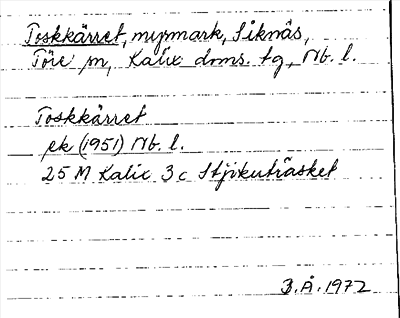 Toskkärret, myrmark, Siknäs,
Töre sn, Kalix doms. tg, Nb. l.
Toskkärret
ek (1951) Nb. l.
25 M Kalix 3 c Stjikuträsket
B.Å. 1972